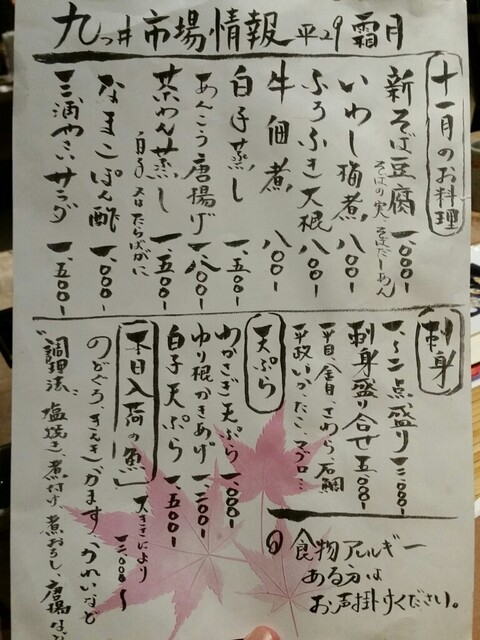 九つ井 市場情報 平29 霜月
十一月のお料理
新そば豆腐 一、000-
そばの実、そばだしあん
いわし梅煮 八00-
ふろふき大根 八00-
牛佃煮 八00-
白子蒸し 一、五00-
あんこう唐揚げ 一、八00-
茶わん蒸し 一、五00-
白子 又はたらばがに
なまこぽん酢 一、000-
三浦やさいサラダ 一、五00-
刺身
一〜二点盛り 一三、000-
刺身盛り合せ 五、000-
平目、金目、さわら、石鯛
平政、いか、たこ、マグロ…
天ぷら
わかさぎ天ぷら 一、000-
ゆり根かきあげ 一、二00-
白子天ぷら 一、五00-
本日入荷の魚
大きさにより
三、000〜
のどぐろ、きんき、かます、かれいなど
"調理法" 塩焼き、煮付け、煮おろし、唐揚
食物アレルギー
ある方は
お声掛けください。